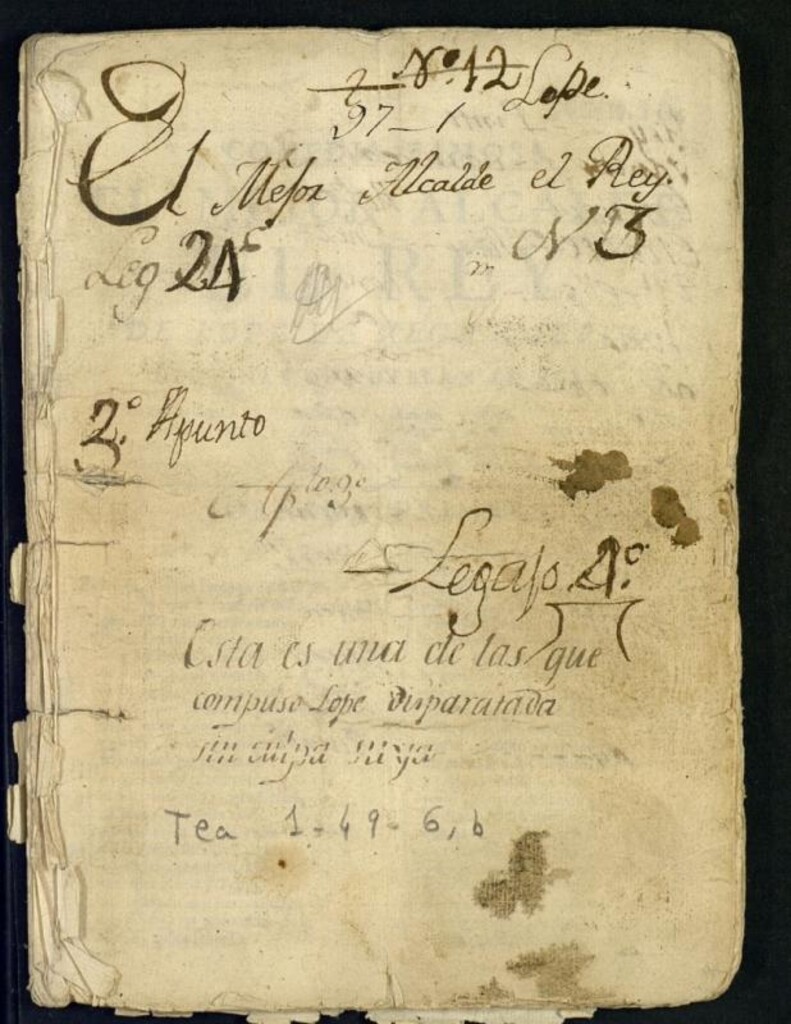 Nº 12 Lope.
37-1
El Mejor Alcalde el Rey.
Leg 24 N 3
2º Apunto
Legajo 4º
Esta es una de las que
compuso Lope disparatada
sin culpa suya
Tea 1-49-6, b